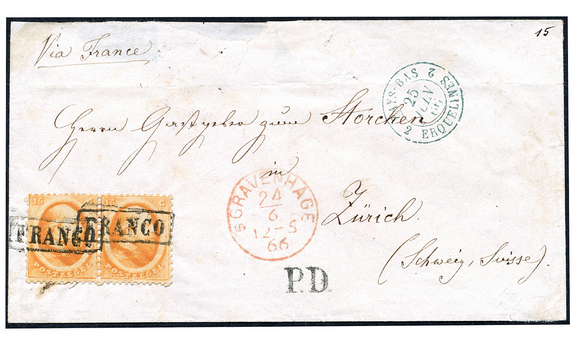 15
Via France
PAYS-BAS 2
25
JUIN
66
2 ERQUELINES
Herrn Gastgeber zum Storchen
in
Zürich
(Schweiz, Suisse).
'S GRAVENHAGE
24
6
12-5
66
FRANCO
FRANCO
P.D.